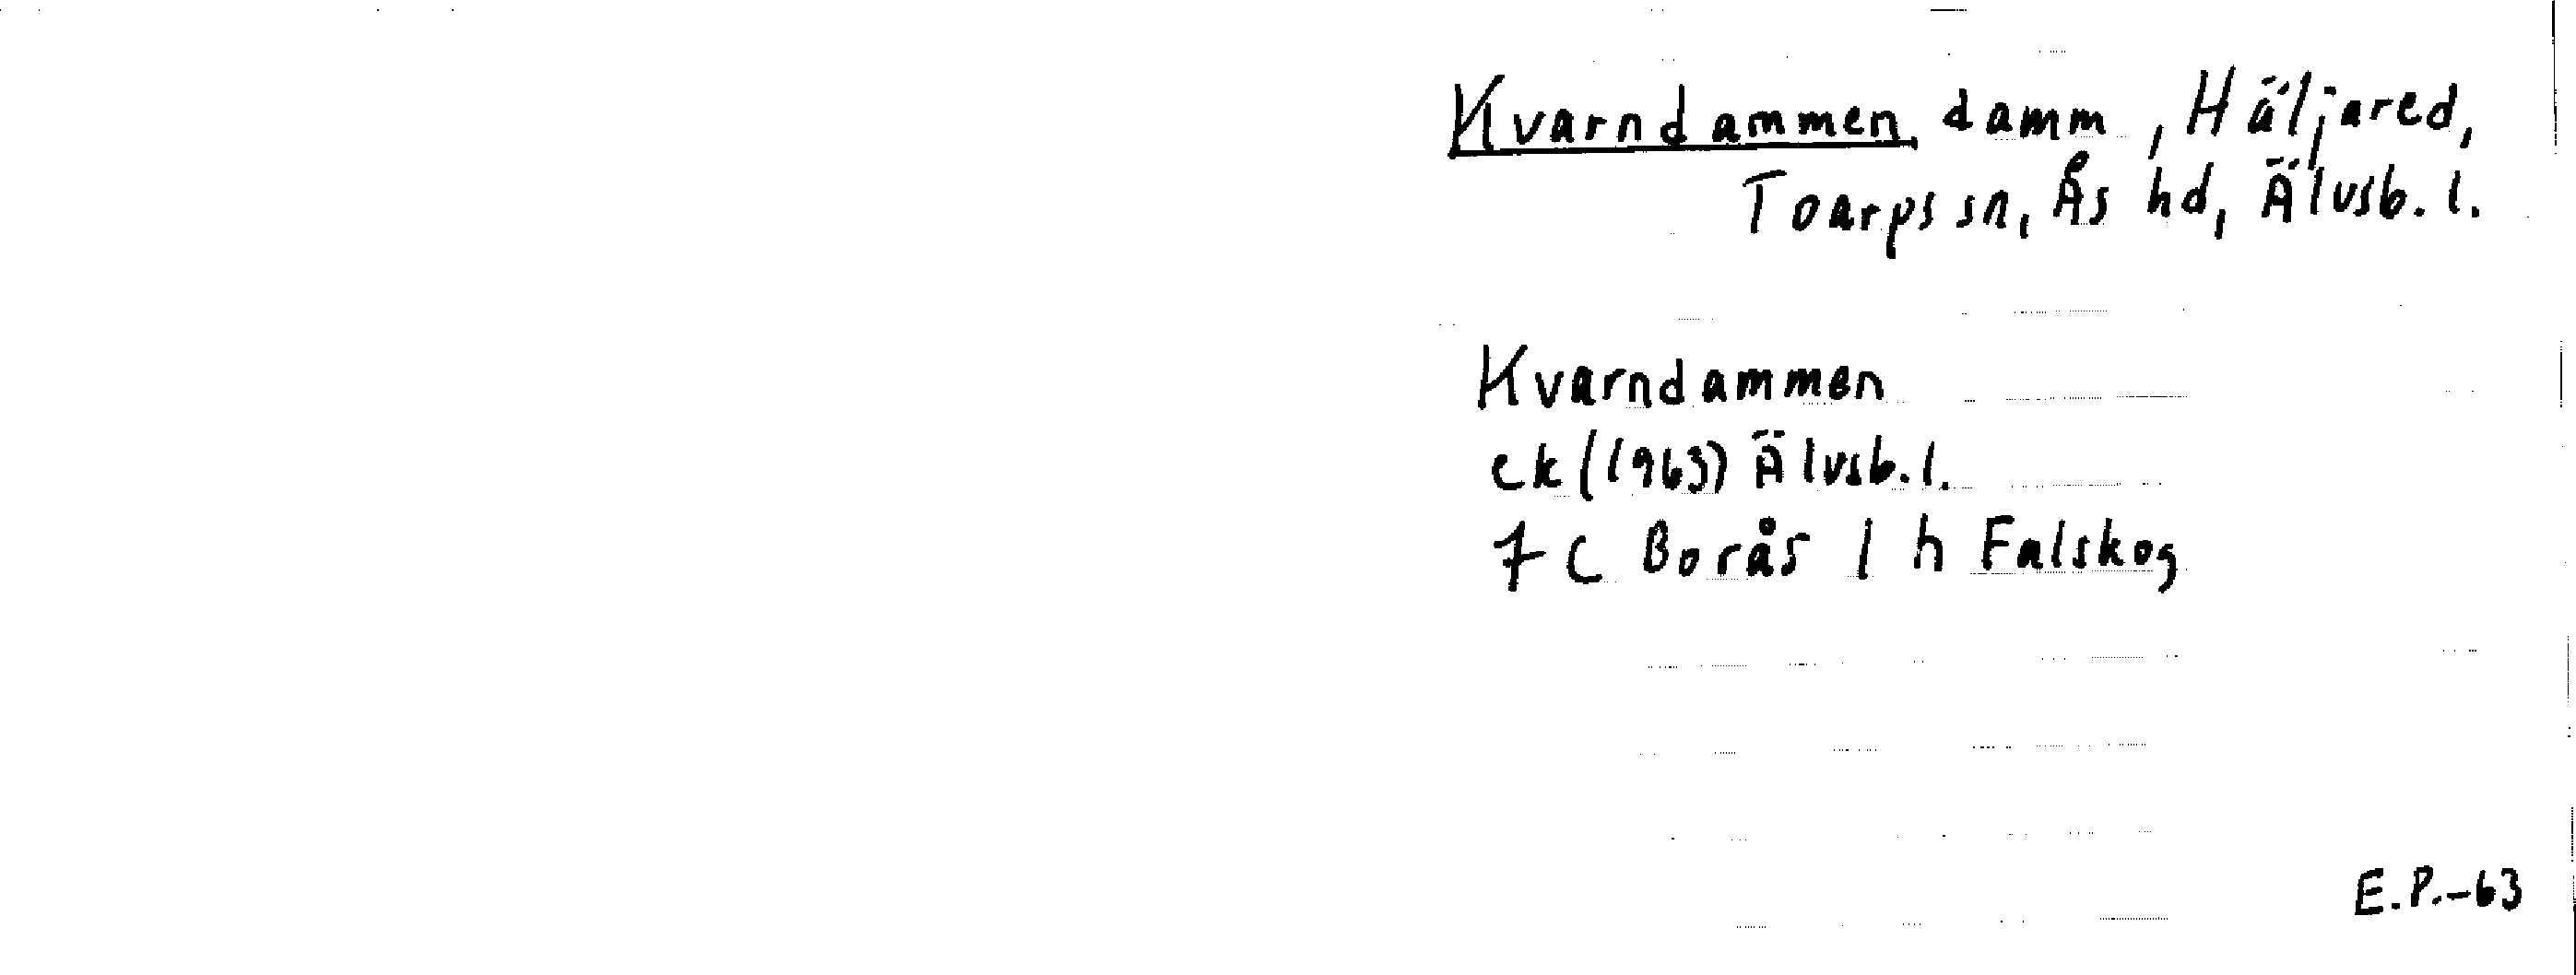 Kvarndammen, damm, Häljared,
Toarps sn, Ås hd, Älvsb. l.
Kvarndammen
ek (1963) Älvsb. l.
7 C Borås 1 h Falskog
E.P.-63